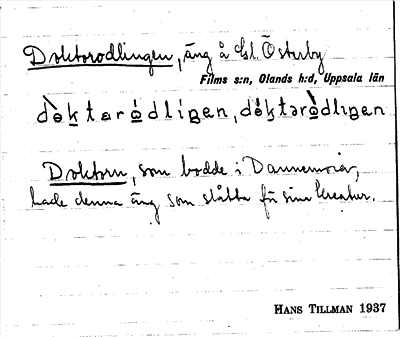 Doktorodlingen, äng å Gl. Österby
Films s:n, Olands h:d, Uppsala län
dòktaródlíŋen, dóktəròdliŋen
Doktorn, som bodde i Dannemora,
hade denna äng som slåtta för sina kreatur.
HANS TILLMAN 1937